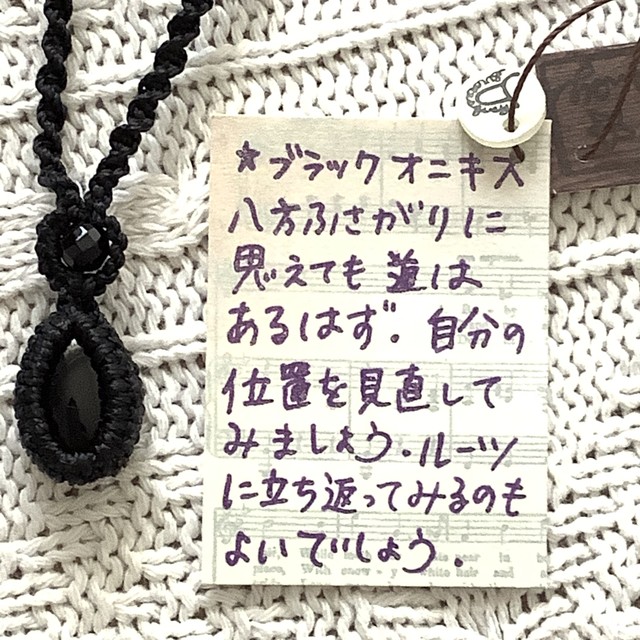 *ブラックオニキス
八方ふさがりに
思えても道は
あるはず。自分の
位置を見直して
みましょう。ルーツ
に立ち返ってみるのも
よいでしょう。